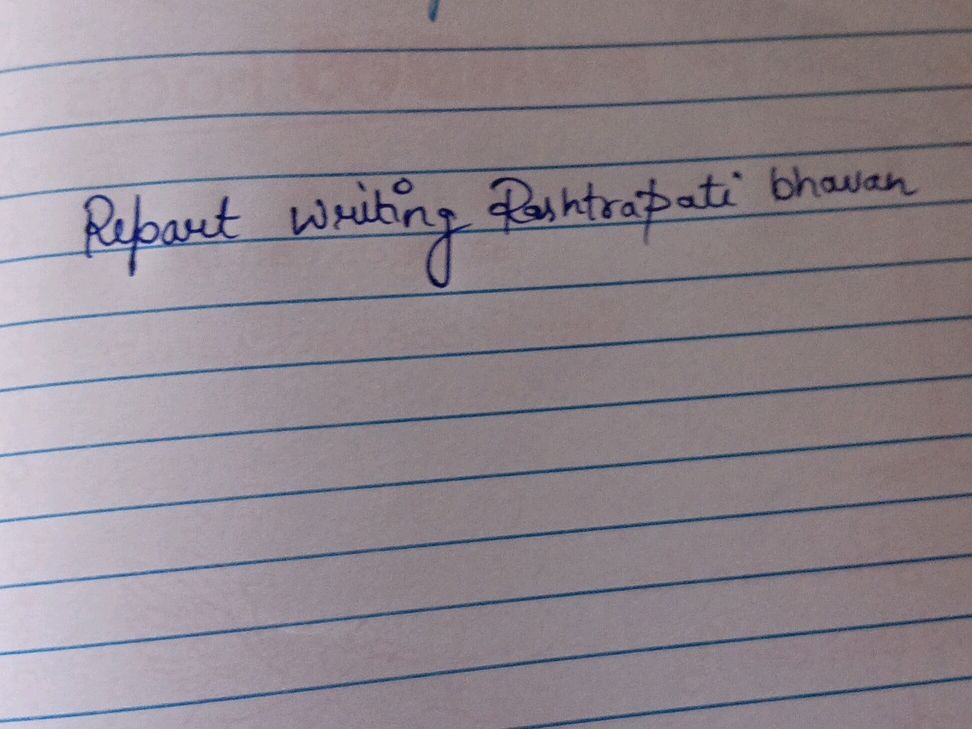 Repart writing Rashtrapati bhavan